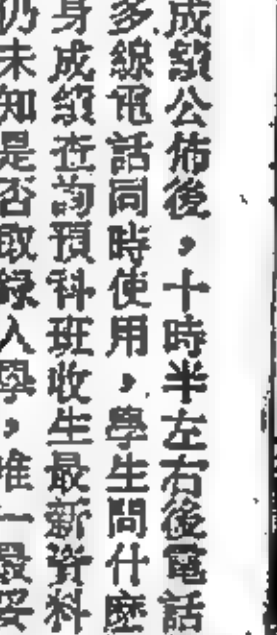 成績公佈後，十時半左右後電話
多線電話同時使用，學生問什麼
身成績查詢預科班收生最新資料
仍未知是否取錄入學，唯一最妥